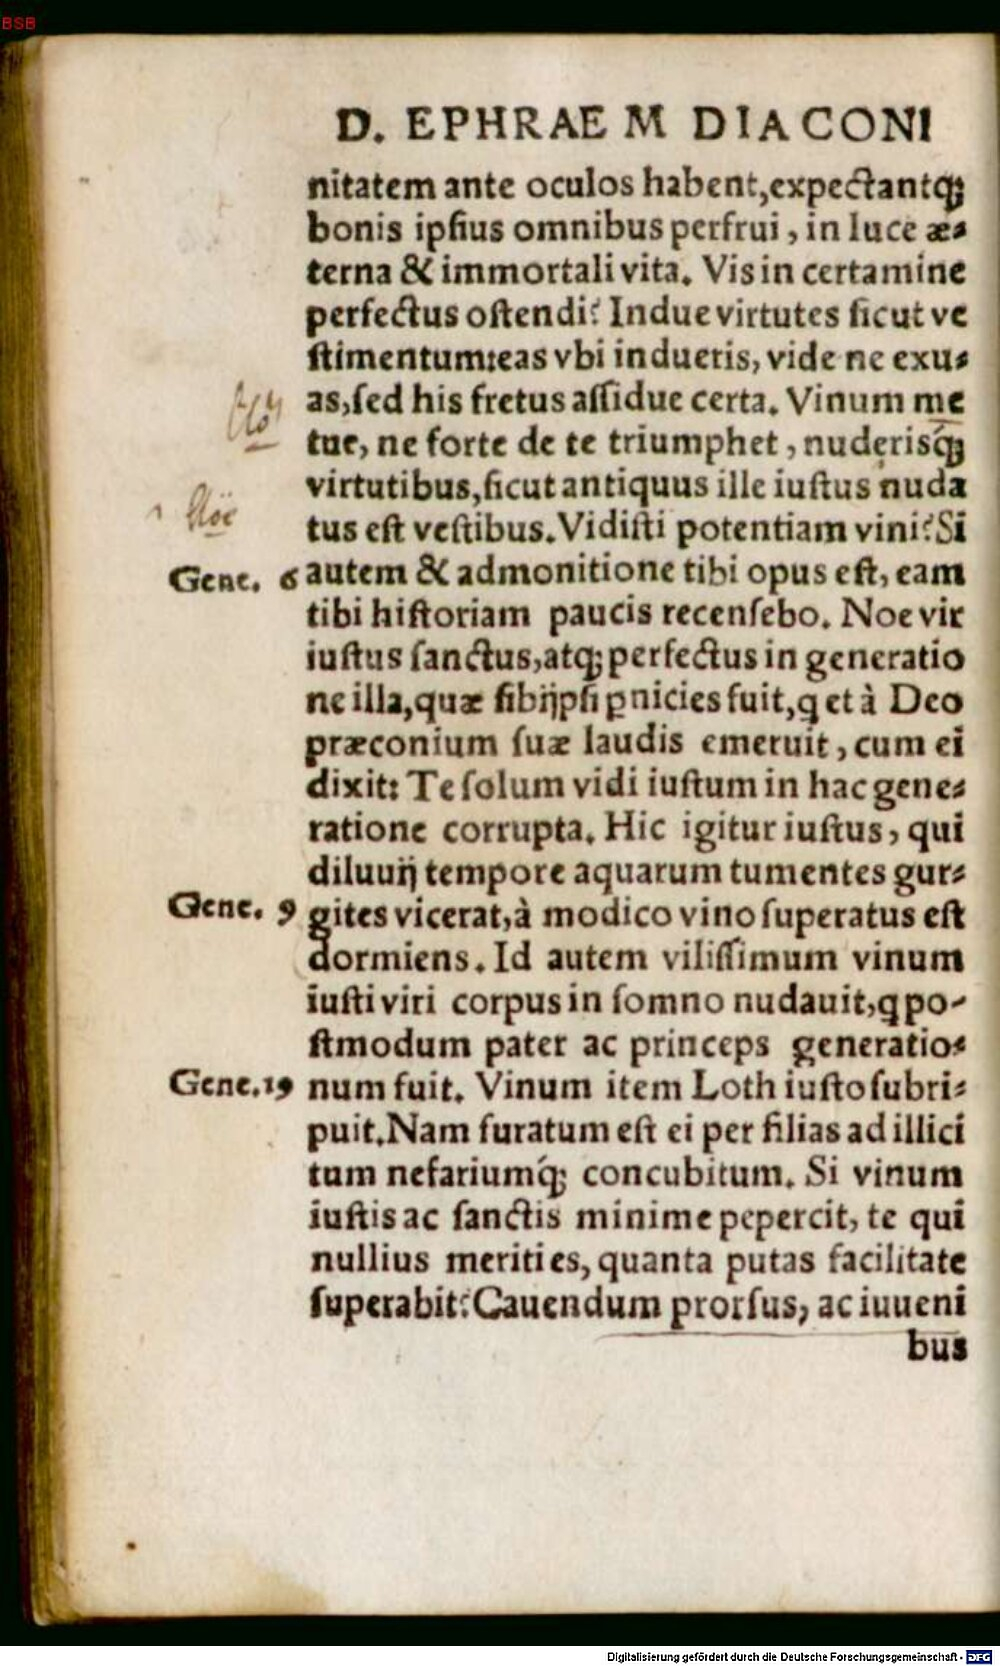 BSB
D. EPHRAEM DIACONI
nitatem ante oculos habent, expectantq́;
bonis ipſius omnibus perfrui, in luce æ-
terna & immortali vita. Vis in certamine
perfectus oſtendi? Indue virtutes ſicut ve
ſtimentum: eas vbi indueris, vide ne exu-
as, ſed his fretus aſſidue certa. Vinum me
tue, ne forte de te triumphet, nuderisq́;
virtutibus, ſicut antiquus ille iuſtus nuda
Noë
tus eſt veſtibus. Vidiſti potentiam vini? Si
Gene. 6 autem & admonitione tibi opus eſt, eam
tibi hiſtoriam paucis recenſebo. Noe vir
iuſtus ſanctus, atq; perfectus in generatio
ne illa, quæ ſibĳpſi ꝑnicies fuit, q et à Deo
præconium ſuæ laudis emeruit, cum ei
dixit: Te ſolum vidi iuſtum in hac gene-
ratione corrupta. Hic igitur iuſtus, qui
diluuĳ tempore aquarum tumentes gur-
Gene. 9 gites vicerat, à modico vino ſuperatus eſt
dormiens. Id autem viliſſimum vinum
iuſti viri corpus in ſomno nudauit, q po-
ſtmodum pater ac princeps generatio-
Gene. 19 num fuit. Vinum item Loth iuſto ſubri-
puit. Nam furatum eſt ei per filias ad illici
tum nefariumq́; concubitum. Si vinum
iuſtis ac ſanctis minime pepercit, te qui
nullius meriti es, quanta putas facilitate
ſuperabit? Cauendum prorſus, ac iuueni
bus
Digitalisierung gefördert durch die Deutsche Forschungsgemeinschaft - DFG